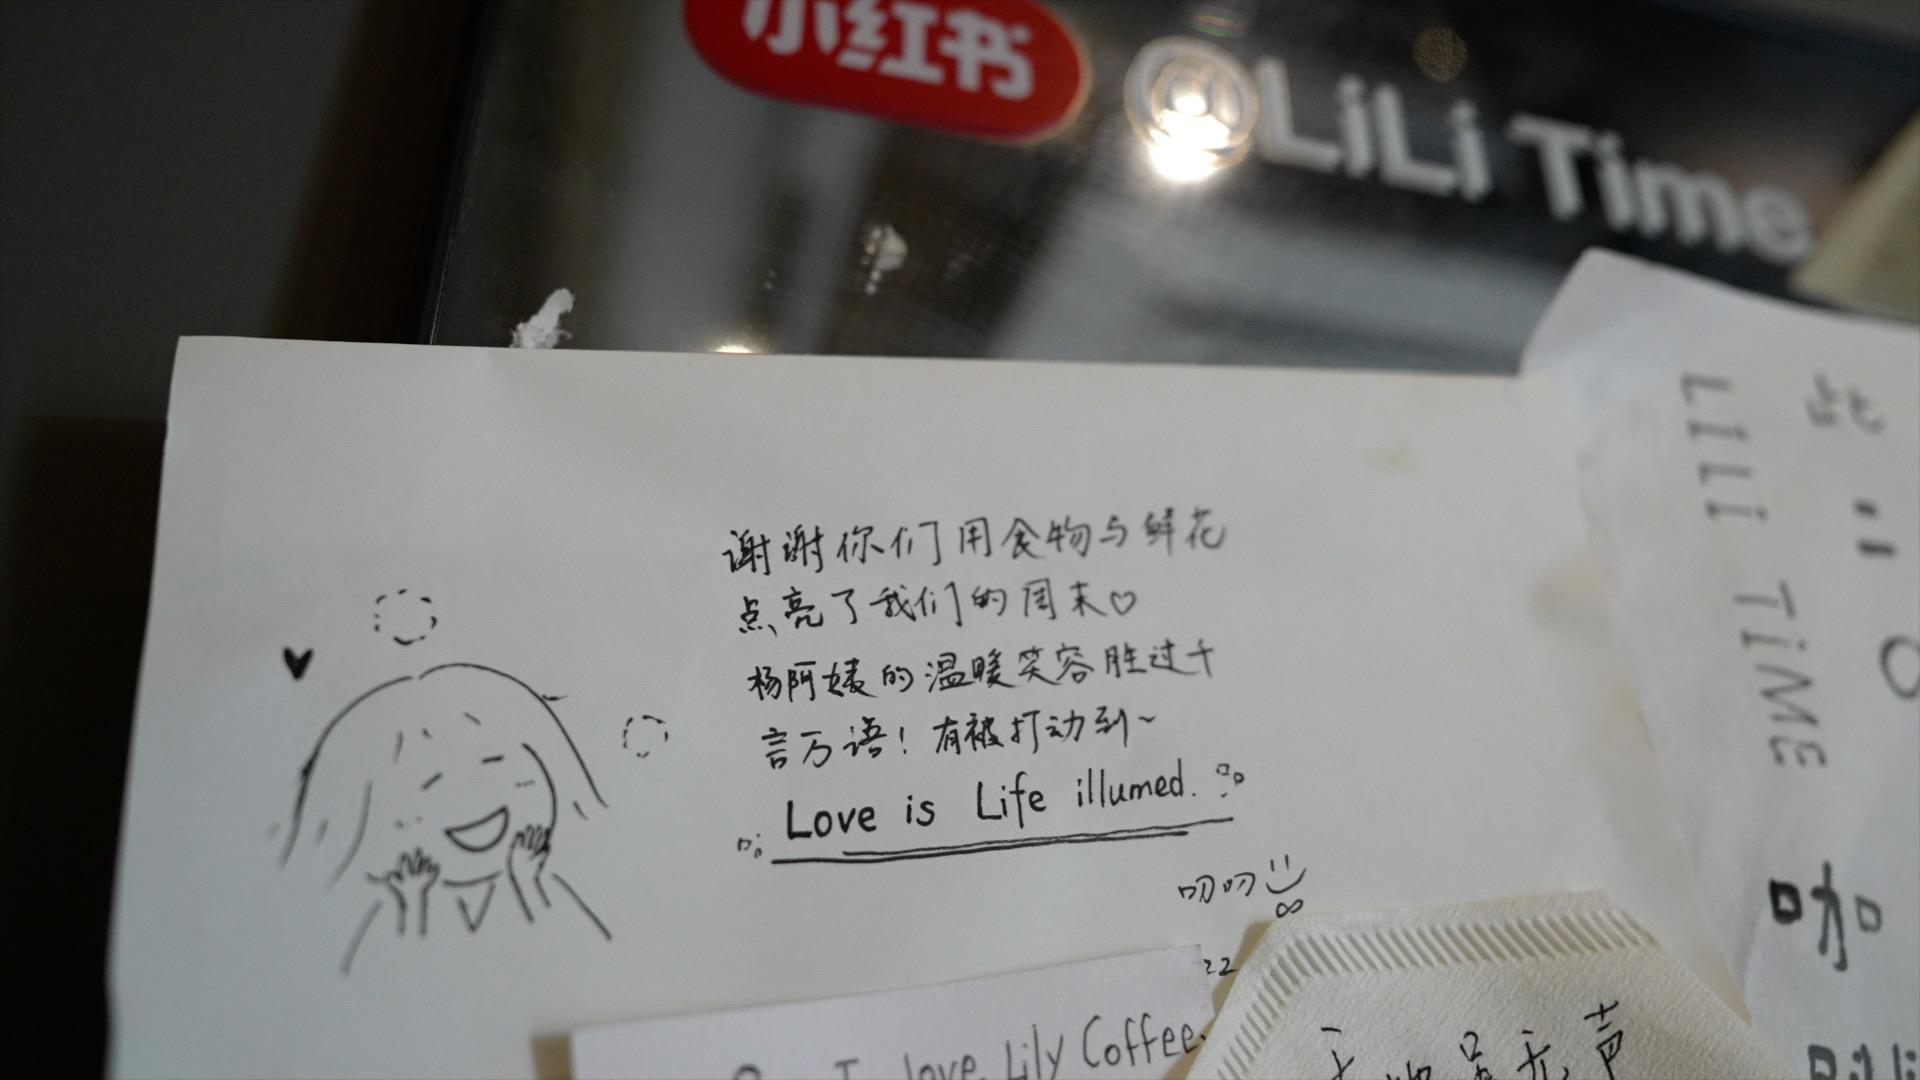 小红书
@LiLi Time
谢谢你们用食物与鲜花
点亮了我们的周末♡
杨阿姨的温暖笑容胜过千
言万语！有被打动到~
Love is Life illumed.
叨叨
22
I love Lily Coffee.
LILI TIME
咖
无声